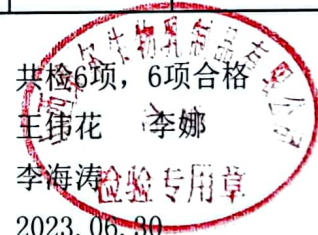 共检6项，6项合格
王伟花 李娜
李海涛
2023.06.30
生物乳制品有限公司
检验专用章